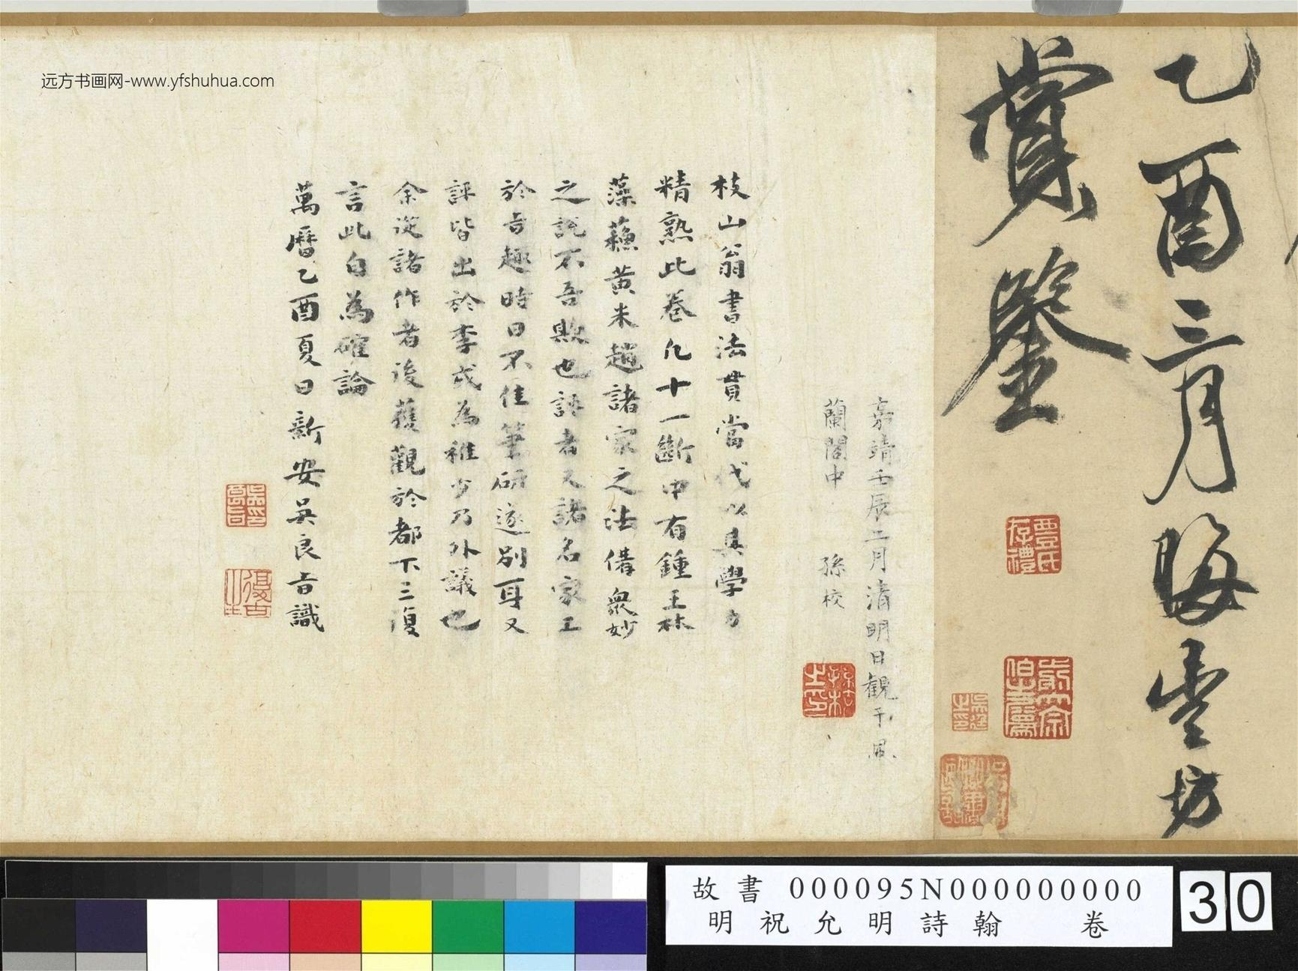 乙酉三月晦豊坊
賞鑒
嘉靖壬辰二月清明日觀于凤
蘭閣中 孫校
枝山翁書法貫當代以其學力
精熟此卷凡十一斷中有鍾王林
藻蘇黄米趙諸家之法備衆妙
之説不吾欺也評者又諸名家工
於古趣時日不佳筆研遂別耳又
評皆出於李或為稚少乃外議也
余從諸作者後獲觀於都下三復
言此自為確論
萬曆乙酉夏日新安吳良旹識
远方书画网-www.yfshuhua.com
故書 000095N000000000
明祝允明詩翰 卷
30